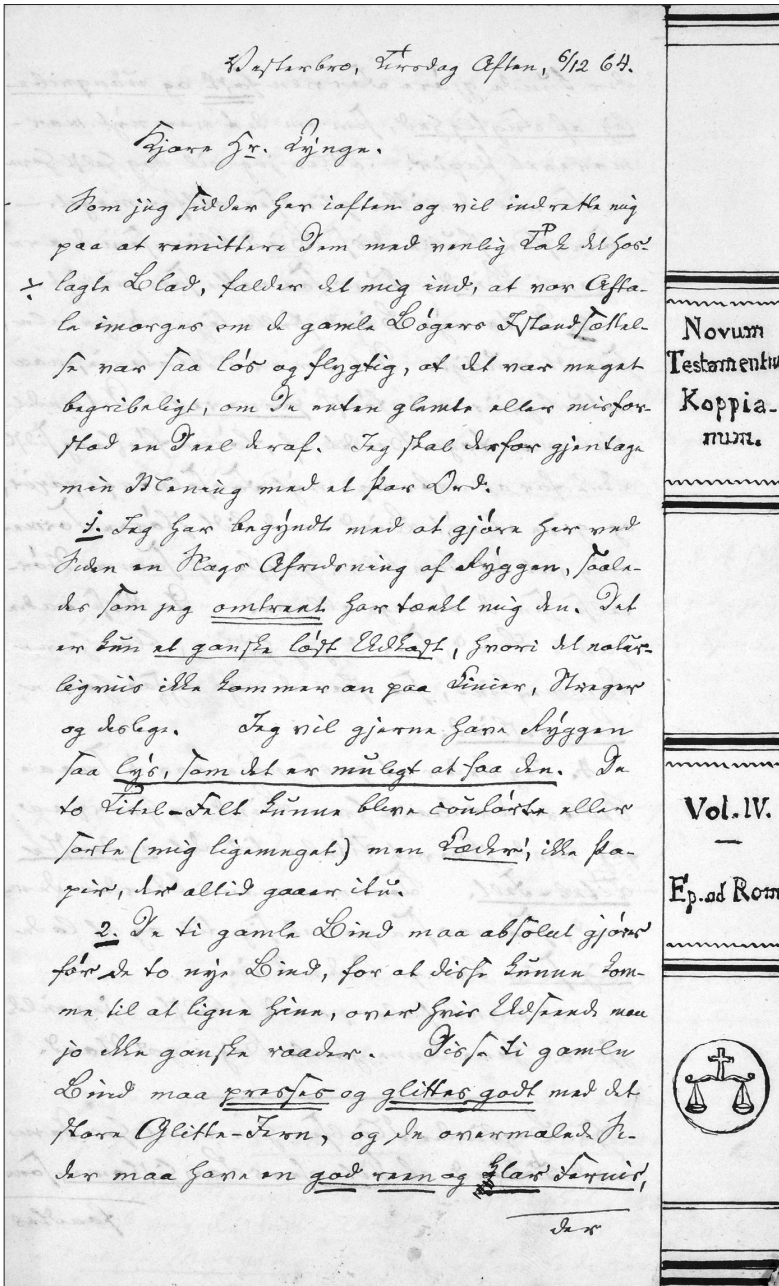 Vesterbro, Tirsdag Aften, 6/12 64.
Kjære Hr. Lynge.
Som jeg sidder her iaften og vil indrette mig
paa at remittere Dem med venlig Tak det hos-
lagte Blad, falder det mig ind, at vor Afta-
le imorges om de gamle Bøgers Istandsættel-
se var saa løs og flygtig, at det var meget
begribeligt, om De enten glemte eller misfor-
stod en Deel deraf. Jeg skal derfor gjentage
min Mening med et Par Ord.
1. Jeg har begyndt med at gjøre her ved
Siden en Slags Afridsning af Ryggen, saale-
des som jeg omtrent har tænkt mig den. Det
er kun et ganske løst Udkast, hvori det natur-
ligviis ikke kommer an paa Linier, Streger
og deslige. Jeg vil gjerne have Ryggen
saa lys, som det er muligt at faa den. De
to Titel-Felt kunne blive coulørte eller
sorte (mig ligemeget) men Læder, ikke Pa-
pir, der altid gaaer itu.
2. De ti gamle Bind maa absolut gjøres
før de to nye Bind, for at disse kunne kom-
me til at ligne hine, over hvis Udseende man
jo ikke ganske raader. Disse ti gamle
Bind maa presses og glittes godt med det
store Glitte-Jern, og de overmalede Si-
der maa have en god reen og klar Fernis,
der
Novum
Testamentu
Koppia-
num.
Vol. IV.
Ep. ad Rom